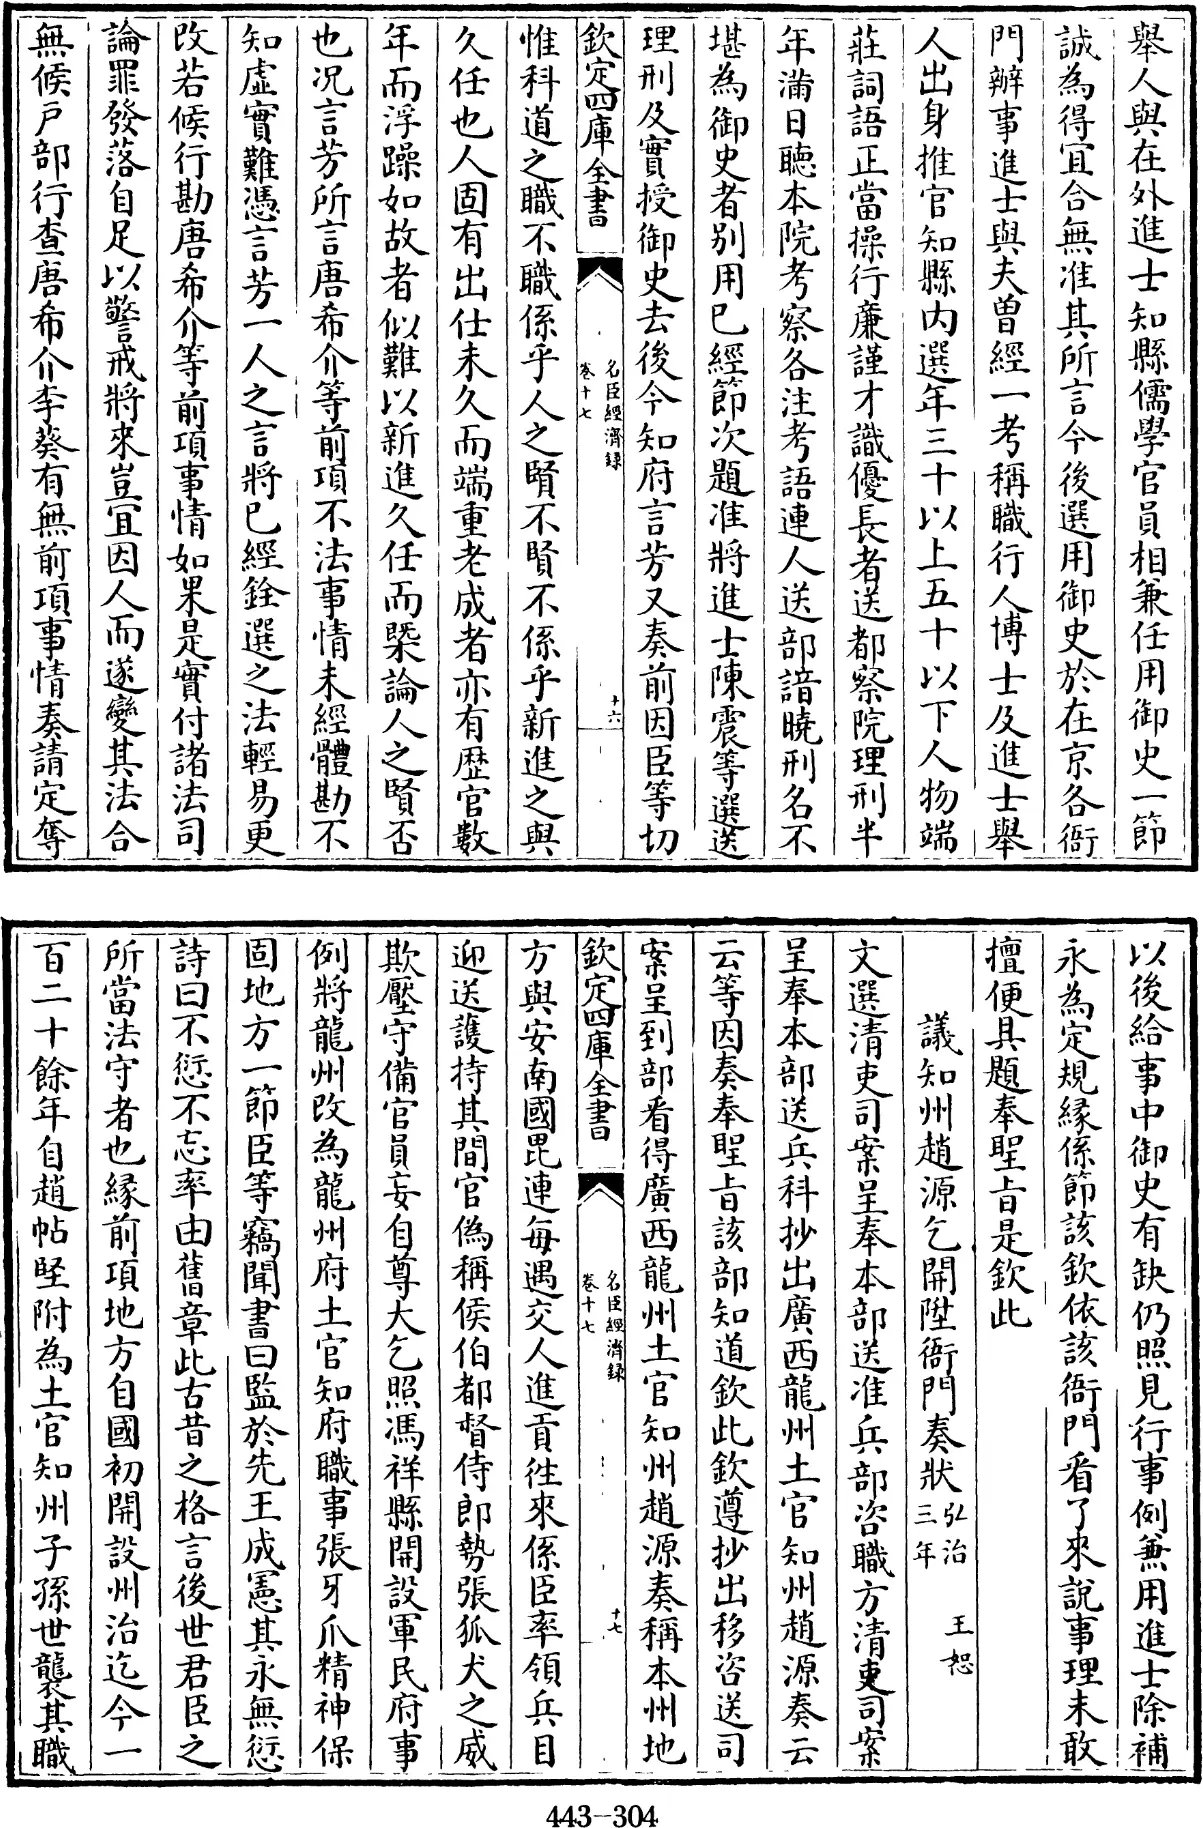 舉人與在外進士知縣儒學官員相兼任用御史一節
誠為得宜合無准其所言今後選用御史於在京各衙
門辦事進士與夫曾經一考稱職行人博士及進士舉
人出身推官知縣内選年三十以上五十以下人物端
莊詞語正當操行廉謹才識優長者送都察院理刑半
年滿日聽本院考察各注考語連人送部諳曉刑名不
堪為御史者别用已經節次題准將進士陳震等選送
理刑及實授御史去後今知府言芳又奏前因臣等切
欽定四庫全書
名臣經濟録
卷十七
十六
惟科道之職不職係乎人之賢不賢不係乎新進之與
久任也人固有出仕未久而端重老成者亦有歴官數
年而浮躁如故者似難以新進久任而槩論人之賢否
也况言芳所言唐希介等前項不法事情未經體勘不
知虛實難憑言芳一人之言將已經銓選之法輕易更
改若候行勘唐希介等前項事情如果是實付諸法司
論罪發落自足以警戒將來豈宜因人而遂變其法合
無候户部行查唐希介李葵有無前項事情奏請定奪
以後給事中御史有缺仍照見行事例兼用進士除補
永為定規縁係節該欽依該衙門看了來說事理未敢
擅便具題奉聖旨是欽此
議知州趙源乞開陞衙門奏狀 弘治三年 王恕
文選清吏司案呈奉本部送准兵部咨職方清吏司案
呈奉本部送兵科抄出廣西龍州土官知州趙源奏云
云等因奏奉聖旨該部知道欽此欽遵抄出移咨送司
案呈到部看得廣西龍州土官知州趙源奏稱本州地
欽定四庫全書
名臣經濟録
卷十七
十七
方與安南國毘連每遇交人進貢往來係臣率領兵目
迎送護持其間官偽稱侯伯都督侍郎勢張狐犬之威
欺壓守備官員妄自尊大乞照馮祥縣開設軍民府事
例將龍州改為龍州府土官知府職事張牙爪精神保
固地方一節臣等竊聞書曰監於先王成憲其永無愆
詩曰不愆不忘率由舊章此古昔之格言後世君臣之
所當法守者也縁前項地方自國初開設州治迄今一
百二十餘年自趙帖堅附為土官知州子孫世襲其職
443-304